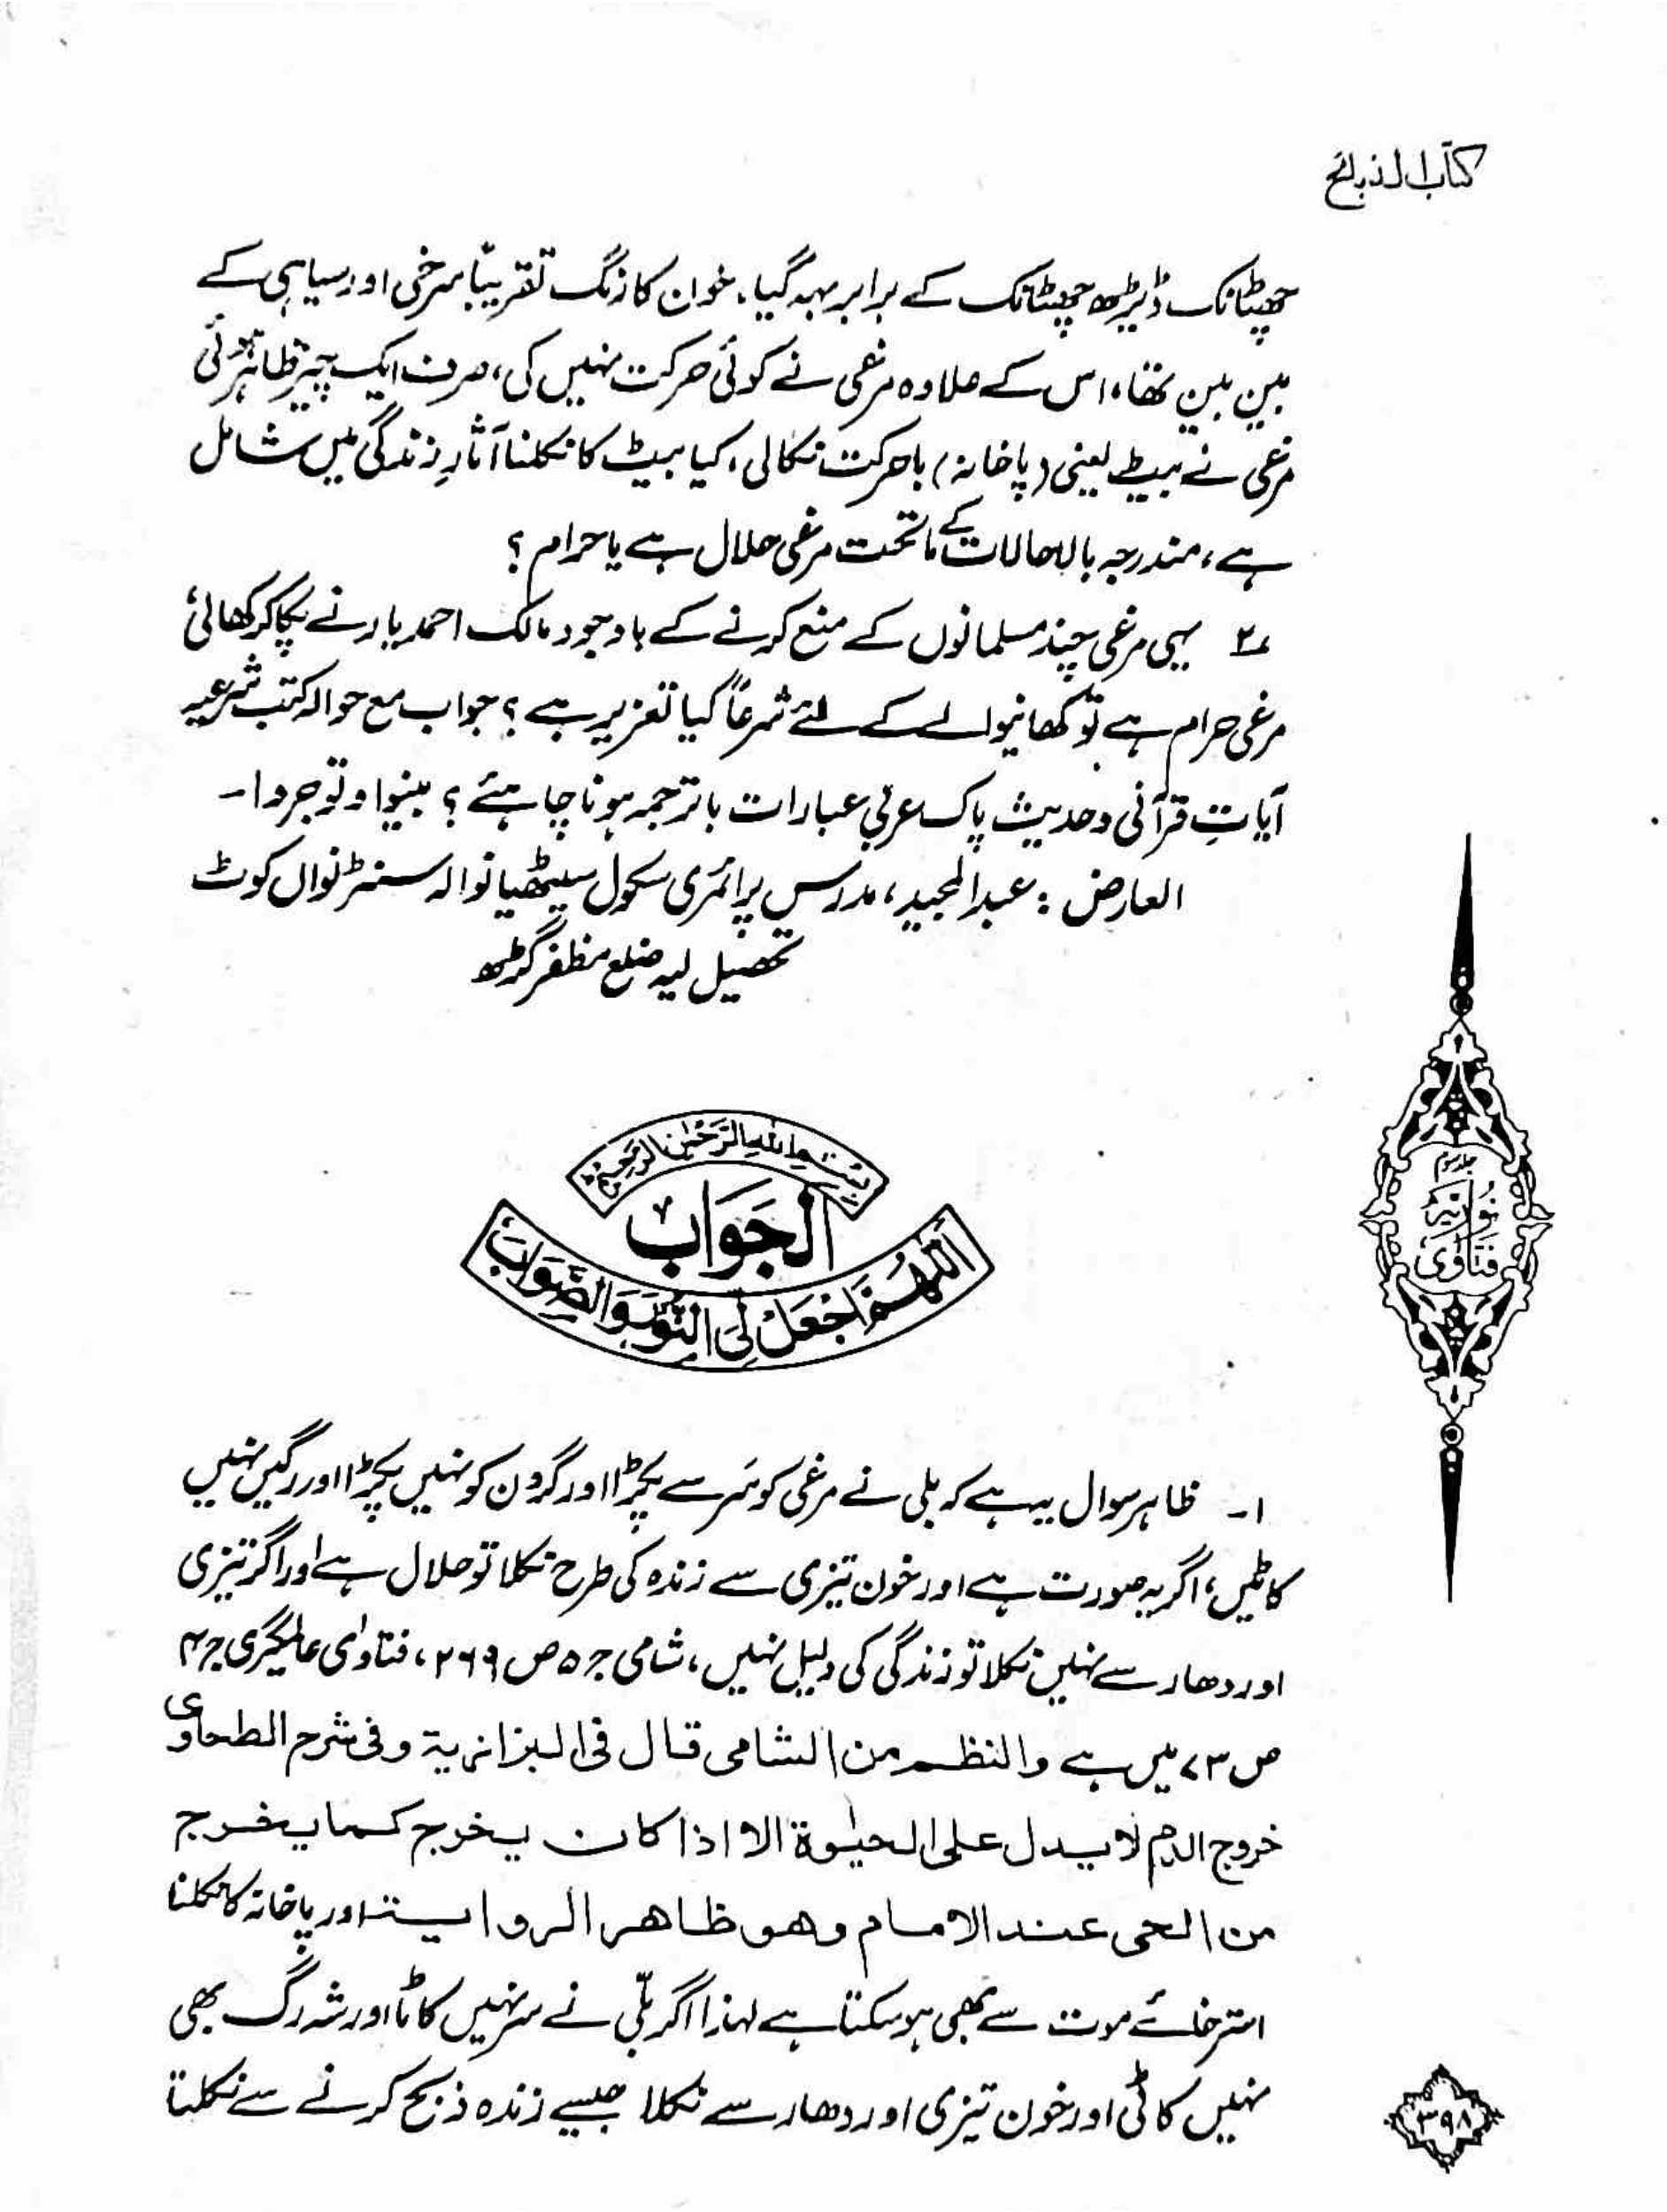 کتاب الذبائح
چھٹانک ڈیڑھ چھٹانک کے برابر بہہ گیا، خون کا رنگ تقریباً سرخی اور سیاہی کے
بین بین تھا، اس کے علاوہ مرغی نے کوئی حرکت نہیں کی، صرف ایک چیز ظاہر ہوئی
مرغی نے بیٹ یعنی (پاخانہ) باحرکت نکالی، کیا بیٹ کا نکلنا آثارِ زندگی میں شامل
ہے، مندرجہ بالا حالات کے ماتحت مرغی حلال ہے یا حرام ؟
۲؎ یہی مرغی چند مسلمانوں کے منع کرنے کے باوجود مالک احمد یار نے پکا کر کھالی،
مرغی حرام ہے تو کھانیوالے کے لئے شرعاً کیا تعزیر ہے ؟ جواب مع حوالہ کتب شرعیہ
آیاتِ قرآنی وحدیث پاک عربی عبارات باترجمہ ہونا چاہئے ؟ بینوا وتوجروا۔
العارض : عبدالمجید، مدرس پرائمری سکول سیٹھیانوالہ سنٹر نواں کوٹ
تحصیل لیہ ضلع مظفر گڑھ
بِسْمِ اللهِ الرَّحْمٰنِ الرَّحِيْمِ
الجَوَابُ
اَللّٰهُمَّ اجْعَلْ لِّيَ النُّوْرَ وَالصَّوَابَ
جلد سوم
نوریہ
فتاوٰی
۱۔ ظاہر سوال یہ ہے کہ بلی نے مرغی کو سَر سے پکڑا اور گردن کو نہیں پکڑا اور رگیں نہیں
کاٹیں، اگر یہ صورت ہے اور خون تیزی سے زندہ کی طرح نکلا تو حلال ہے اور اگر تیزی
اور دھار سے نہیں نکلا تو زندگی کی دلیل نہیں، شامی ج ۵ ص ۲۶۹، فتاوٰی عالمگیری ج ۴
ص ۷۳ میں ہے والنظم من الشامی قال فی البزازیة وفی شرح الطحاوی
خروج الدم لا یدل علی الحیٰوة الا اذا کان یخرج کما یخرج
من الحی عند الامام وھو ظاھر الروایة اور پاخانہ کا نکلنا
استرخائے موت سے بھی ہوسکتا ہے لہذا اگر بلّی نے سر نہیں کاٹا اور شہ رگ بھی
نہیں کاٹی اور خون تیزی اور دھار سے نکلا جیسے زندہ ذبح کرنے سے نکلتا
۳۹۸